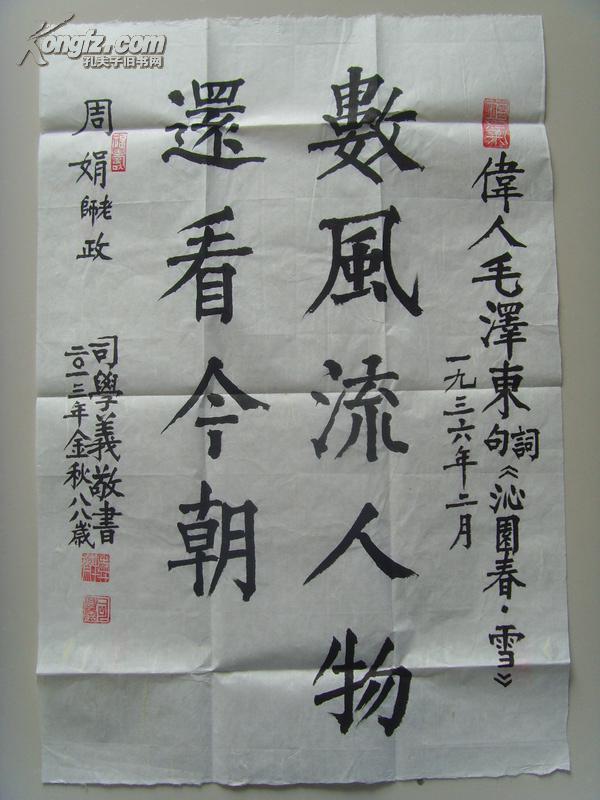 Kongfz.com
孔夫子旧书网
偉人毛澤東詞句《沁園春·雪》
一九三六年二月
數風流人物
還看今朝
周娟老師政
司學義敬書
二〇一三年金秋八八歲